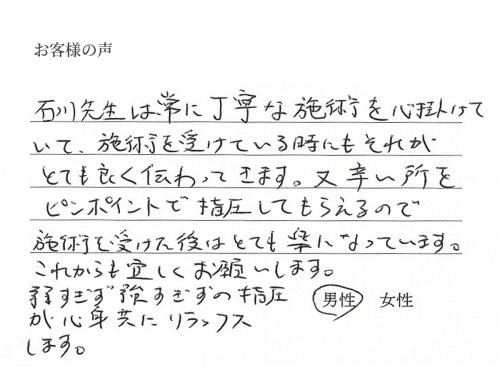 お客様の声
石川先生は常に丁寧な施術を心掛けて
いて、施術を受けている時にもそれが
とても良く伝わってきます。又辛い所を
ピンポイントで指圧してもらえるので
施術を受けた後はとても楽になっています。
これからも宜しくお願いします。
弱すぎず強すぎずの指圧 男性 女性
が心身共にリラックス
します。